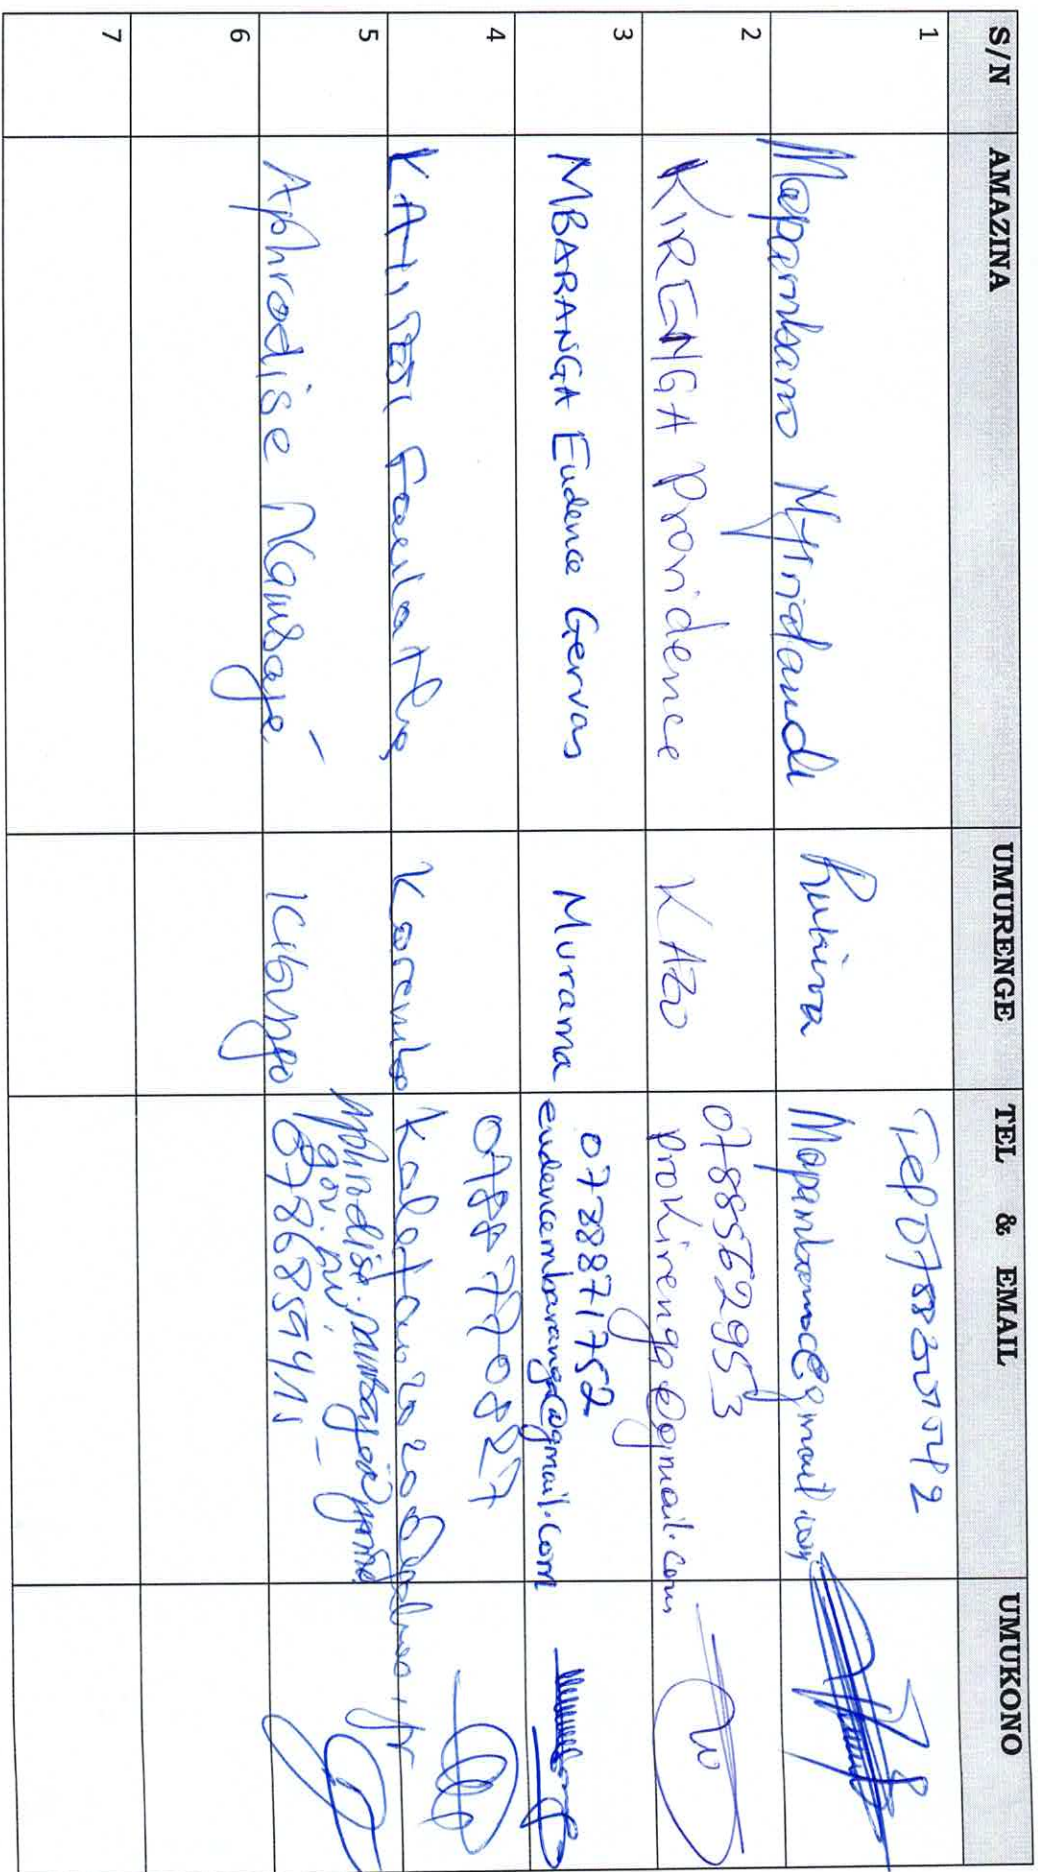 S/N AMAZINA UMURENGE TEL & EMAIL UMUKONO
1 Mapambano Nyiridandi Rukira Tel 0788201542
Mapambano@gmail.com
2 KIRENGA Providence KAZO 0788562953
prokirenga@gmail.com
3 MBARANGA Eudence Gervas Murama 0738871752
eudencembaranga@gmail.com
4 Karembo 0788770827
kalefau2020@yahoo.fr
5 Aphrodise Nambajé Kibungo
gov.rw
6
7